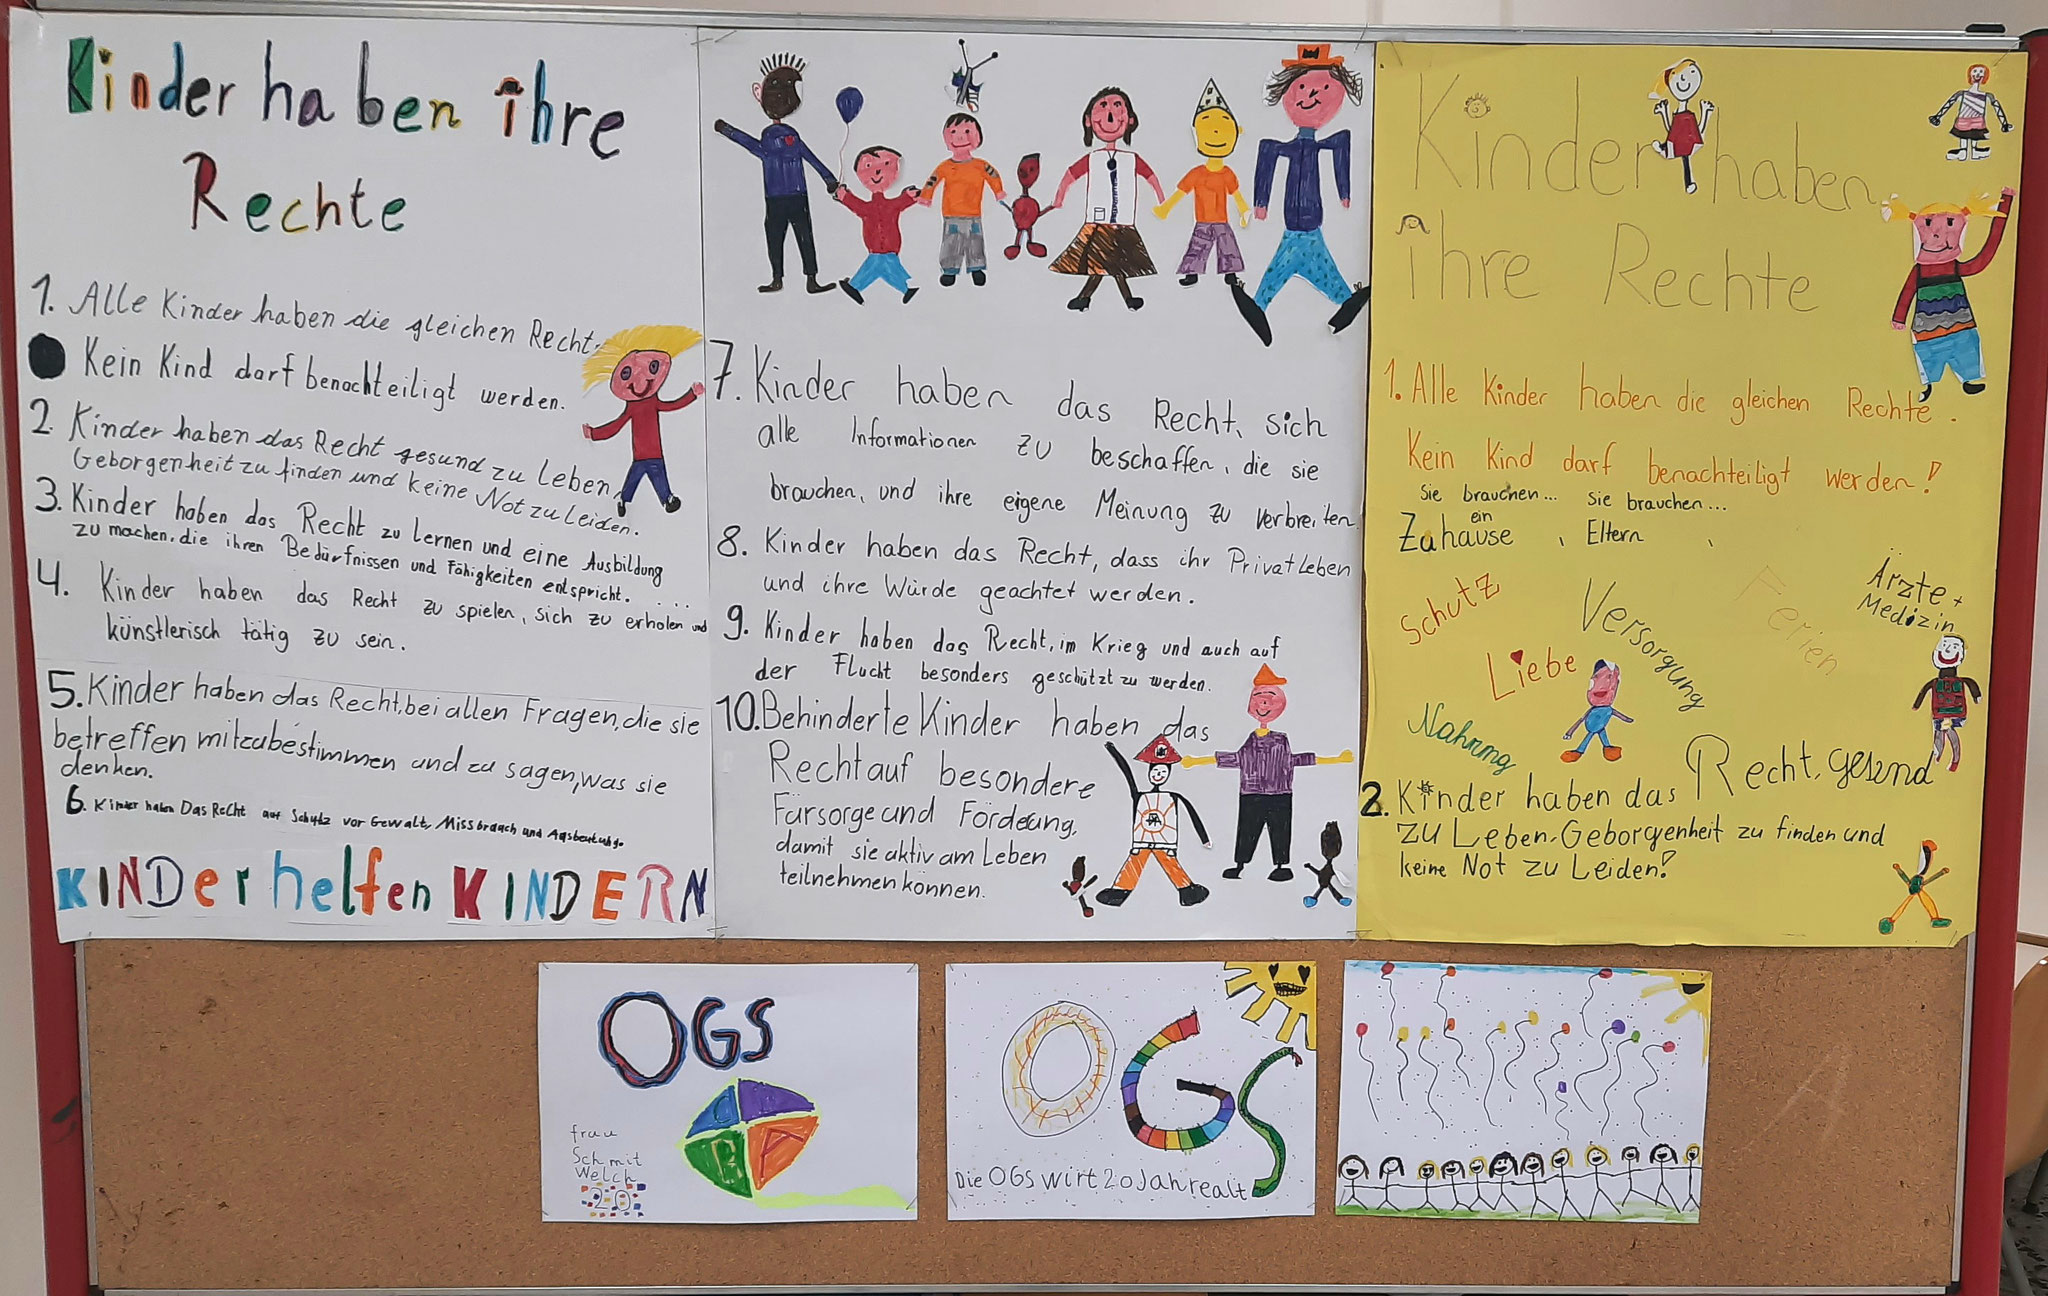 Kinder haben ihre
Rechte
1. Alle Kinder haben die gleichen Recht.
Kein Kind darf benachteiligt werden.
2. Kinder haben das Recht gesund zu leben,
Geborgenheit zu finden und keine Not zu Leiden.
3. Kinder haben das Recht zu Lernen und eine Ausbildung
zu machen, die ihren Bedürfnissen und Fähigkeiten entspricht. . . . .
4. Kinder haben das Recht zu spielen, sich zu erholen und
künstlerisch tätig zu sein.
5. Kinder haben das Recht, bei allen Fragen, die sie
betreffen mitzubestimmen und zu sagen, was sie
denken.
6. Kinder haben Das Recht auf Schutz vor Gewalt, Missbrauch und Ausbeutung.
KINDer helfen KINDERN
7. Kinder haben das Recht, sich
alle Informationen zu beschaffen, die sie
brauchen, und ihre eigene Meinung zu verbreiten.
8. Kinder haben das Recht, dass ihr PrivatLeben
und ihre Würde geachtet werden.
9. Kinder haben das Recht, im Krieg und auch auf
der Flucht besonders geschützt zu werden.
10. Behinderte Kinder haben das
Recht auf besondere
Fürsorge und Förderung,
damit sie aktiv am Leben
teilnehmen können.
Kinder haben
ihre Rechte
1. Alle Kinder haben die gleichen Rechte.
Kein Kind darf benachteiligt werden!
Sie brauchen... Sie brauchen...
ein
Zuhause, Eltern,
Schutz
Versorgung
Ferien
Ärzte +
Medizin
Liebe
Nahrung
2. Kinder haben das Recht, gesund
zu Leben, Geborgenheit zu finden und
keine Not zu Leiden!
OGS
frau
Schmit
Welch
20
OGS
Die OGS wirt 20 Jahre alt